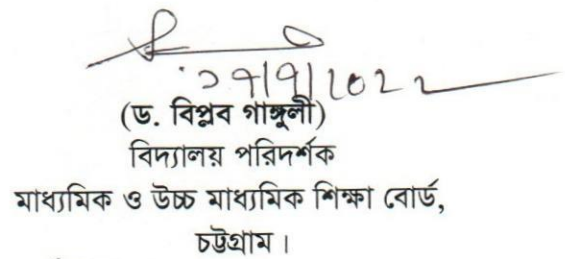 ২৭/৭/২০২২
(ড. বিপ্লব গাঙ্গুলী)
বিদ্যালয় পরিদর্শক
মাধ্যমিক ও উচ্চ মাধ্যমিক শিক্ষা বোর্ড,
চট্টগ্রাম।